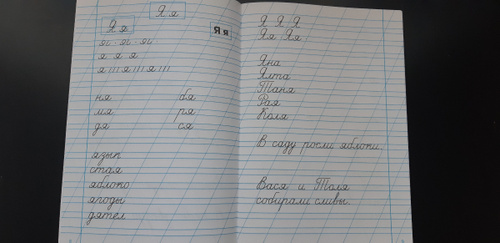 Я я
Я я
я я я
я я я
я т я т я т я т
ня бя
мя ря
дя ся
язык
стая
яблоко
ягоды
дятел
Я я
Я Я Я
Яя Яя
Яна
Ялта
Таня
Рая
Коля
В саду росли яблони.
Вася и Толя
собирали сливы.